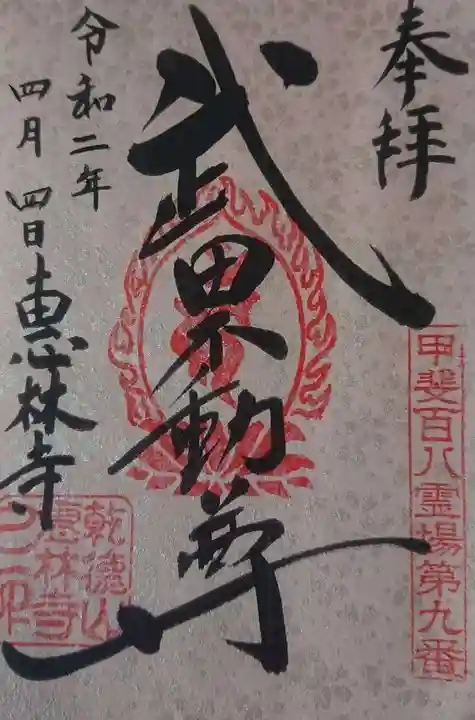 奉拝
甲斐百八霊場第九番
武田不動尊
令和二年
四月 四日
恵林寺
乾徳山
恵林寺